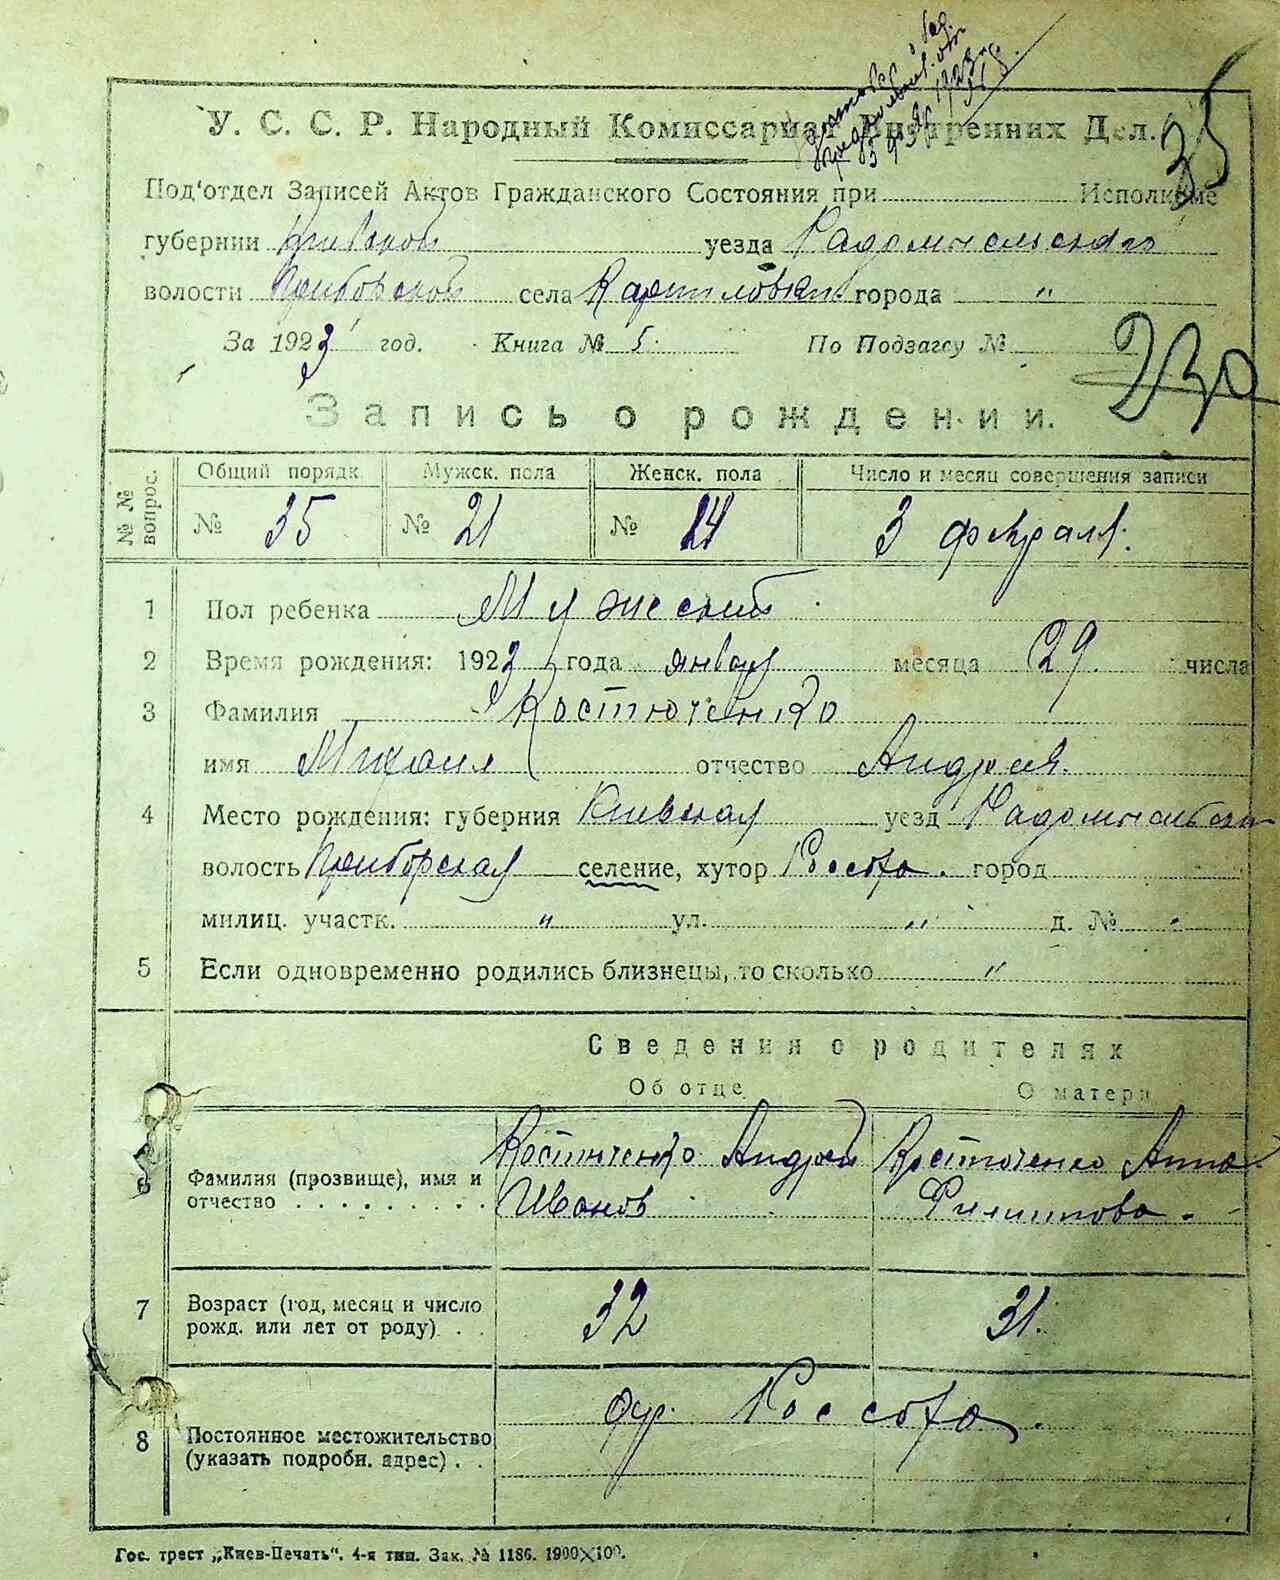 35
У. С. С. Р. Народный Комиссариат Внутренних Дел.
Под'отдел Записей Актов Гражданского Состояния при Исполкоме
губернии Киевской уезда Радомысльскаго
волости Приборской села Карпиловки города "
За 1923 год. Книга № 5. По Подзагсу №
230
Запись о рождении.
№ № вопрос. Общий порядк. Мужск. пола Женск. пола Число и месяц совершения записи
№ 35 № 21 № 14 3 февраля.
1 Пол ребенка Мужеский
2 Время рождения: 1923 года января месяца 29 числа
3 Фамилия Костюченко
имя Михаил отчество Андрея.
4 Место рождения: губерния Киевская уезд Радомысльский
волость Приборская селение, хутор Россоха. город
милиц. участк. " ул. " д. № "
5 Если одновременно родились близнецы, то сколько "
Сведения о родителях
Об отце О матери
Костюченко Андрей Костюченко Анна
6 Фамилия (прозвище), имя и отчество . . . . . . . . . Иванов Филиппова.
7 Возраст (год, месяц и число рожд. или лет от роду) . . 32 31.
8 Постоянное местожительство (указать подробн. адрес) . . дер. Россоха.
Гос. трест „Киев-Печать“. 4-я тип. Зак. № 1186. 1900×100.